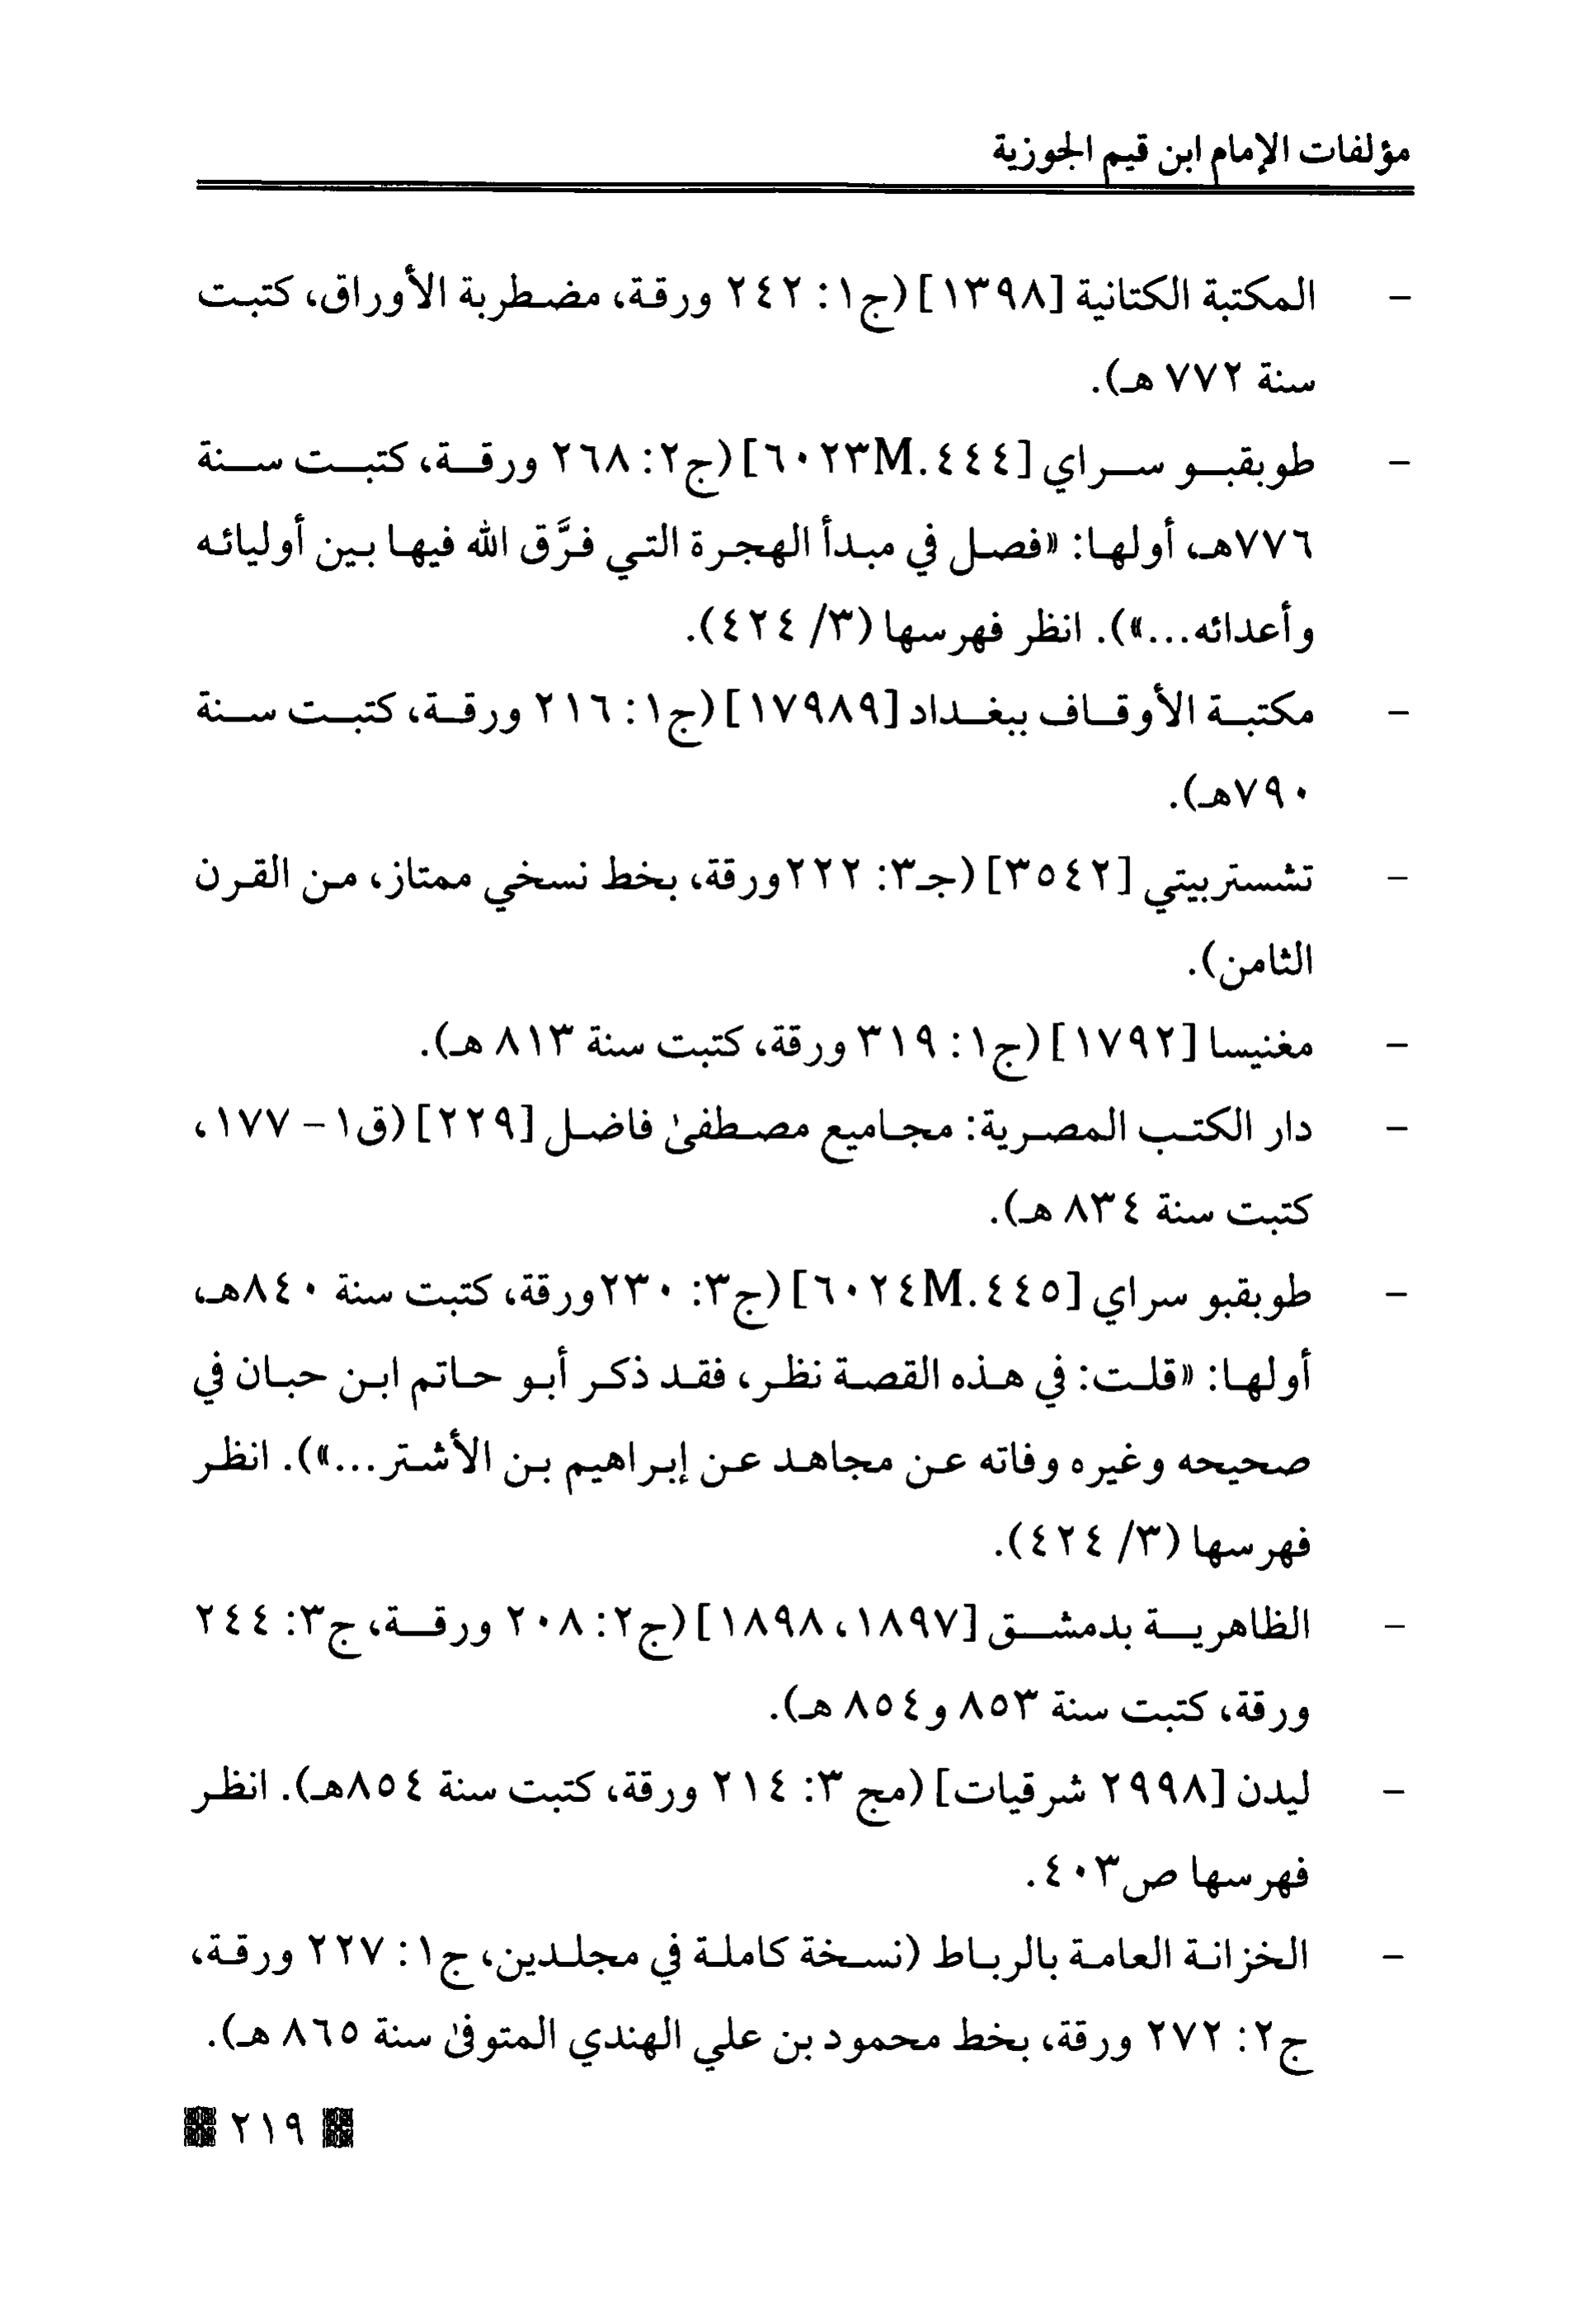 مؤلفات الإمام ابن قيم الجوزية
- المكتبة الكتانية [١٣٩٨] (ج١: ٢٤٢ ورقة، مضطربة الأوراق، كتبت
سنة ٧٧٢ هـ).
- طوبقبو سراي [٦٠٢٣M.٤٤٤] (ج٢: ٢٦٨ ورقة، كتبت سنة
٧٧٦هـ، أولها: «فصل في مبدأ الهجرة التي فرَّق الله فيها بين أوليائه
وأعدائه...»). انظر فهرسها (٣/ ٤٢٤).
- مكتبة الأوقاف ببغداد [١٧٩٨٩] (ج١: ٢١٦ ورقة، كتبت سنة
٧٩٠هـ).
- تشستربيتي [٣٥٤٢] (جـ٣: ٢٢٢ورقة، بخط نسخي ممتاز، من القرن
الثامن).
- مغنيسا [١٧٩٢] (ج١: ٣١٩ ورقة، كتبت سنة ٨١٣ هـ).
- دار الكتب المصرية: مجاميع مصطفىٰ فاضل [٢٢٩] (ق١- ١٧٧،
كتبت سنة ٨٣٤ هـ).
- طوبقبو سراي [٦٠٢٤M.٤٤٥] (ج٣: ٢٣٠ورقة، كتبت سنة ٨٤٠هـ،
أولها: «قلت: في هذه القصة نظر، فقد ذكر أبو حاتم ابن حبان في
صحيحه وغيره وفاته عن مجاهد عن إبراهيم بن الأشتر...»). انظر
فهرسها (٣/ ٤٢٤).
- الظاهرية بدمشق [١٨٩٧، ١٨٩٨] (ج٢: ٢٠٨ ورقة، ج٣: ٢٤٤
ورقة، كتبت سنة ٨٥٣ و٨٥٤ هـ).
- ليدن [٢٩٩٨ شرقيات] (مج ٣: ٢١٤ ورقة، كتبت سنة ٨٥٤هـ). انظر
فهرسها ص٤٠٣.
- الخزانة العامة بالرباط (نسخة كاملة في مجلدين، ج١: ٢٢٧ ورقة،
ج٢: ٢٧٢ ورقة، بخط محمود بن علي الهندي المتوفىٰ سنة ٨٦٥ هـ).
٢١٩